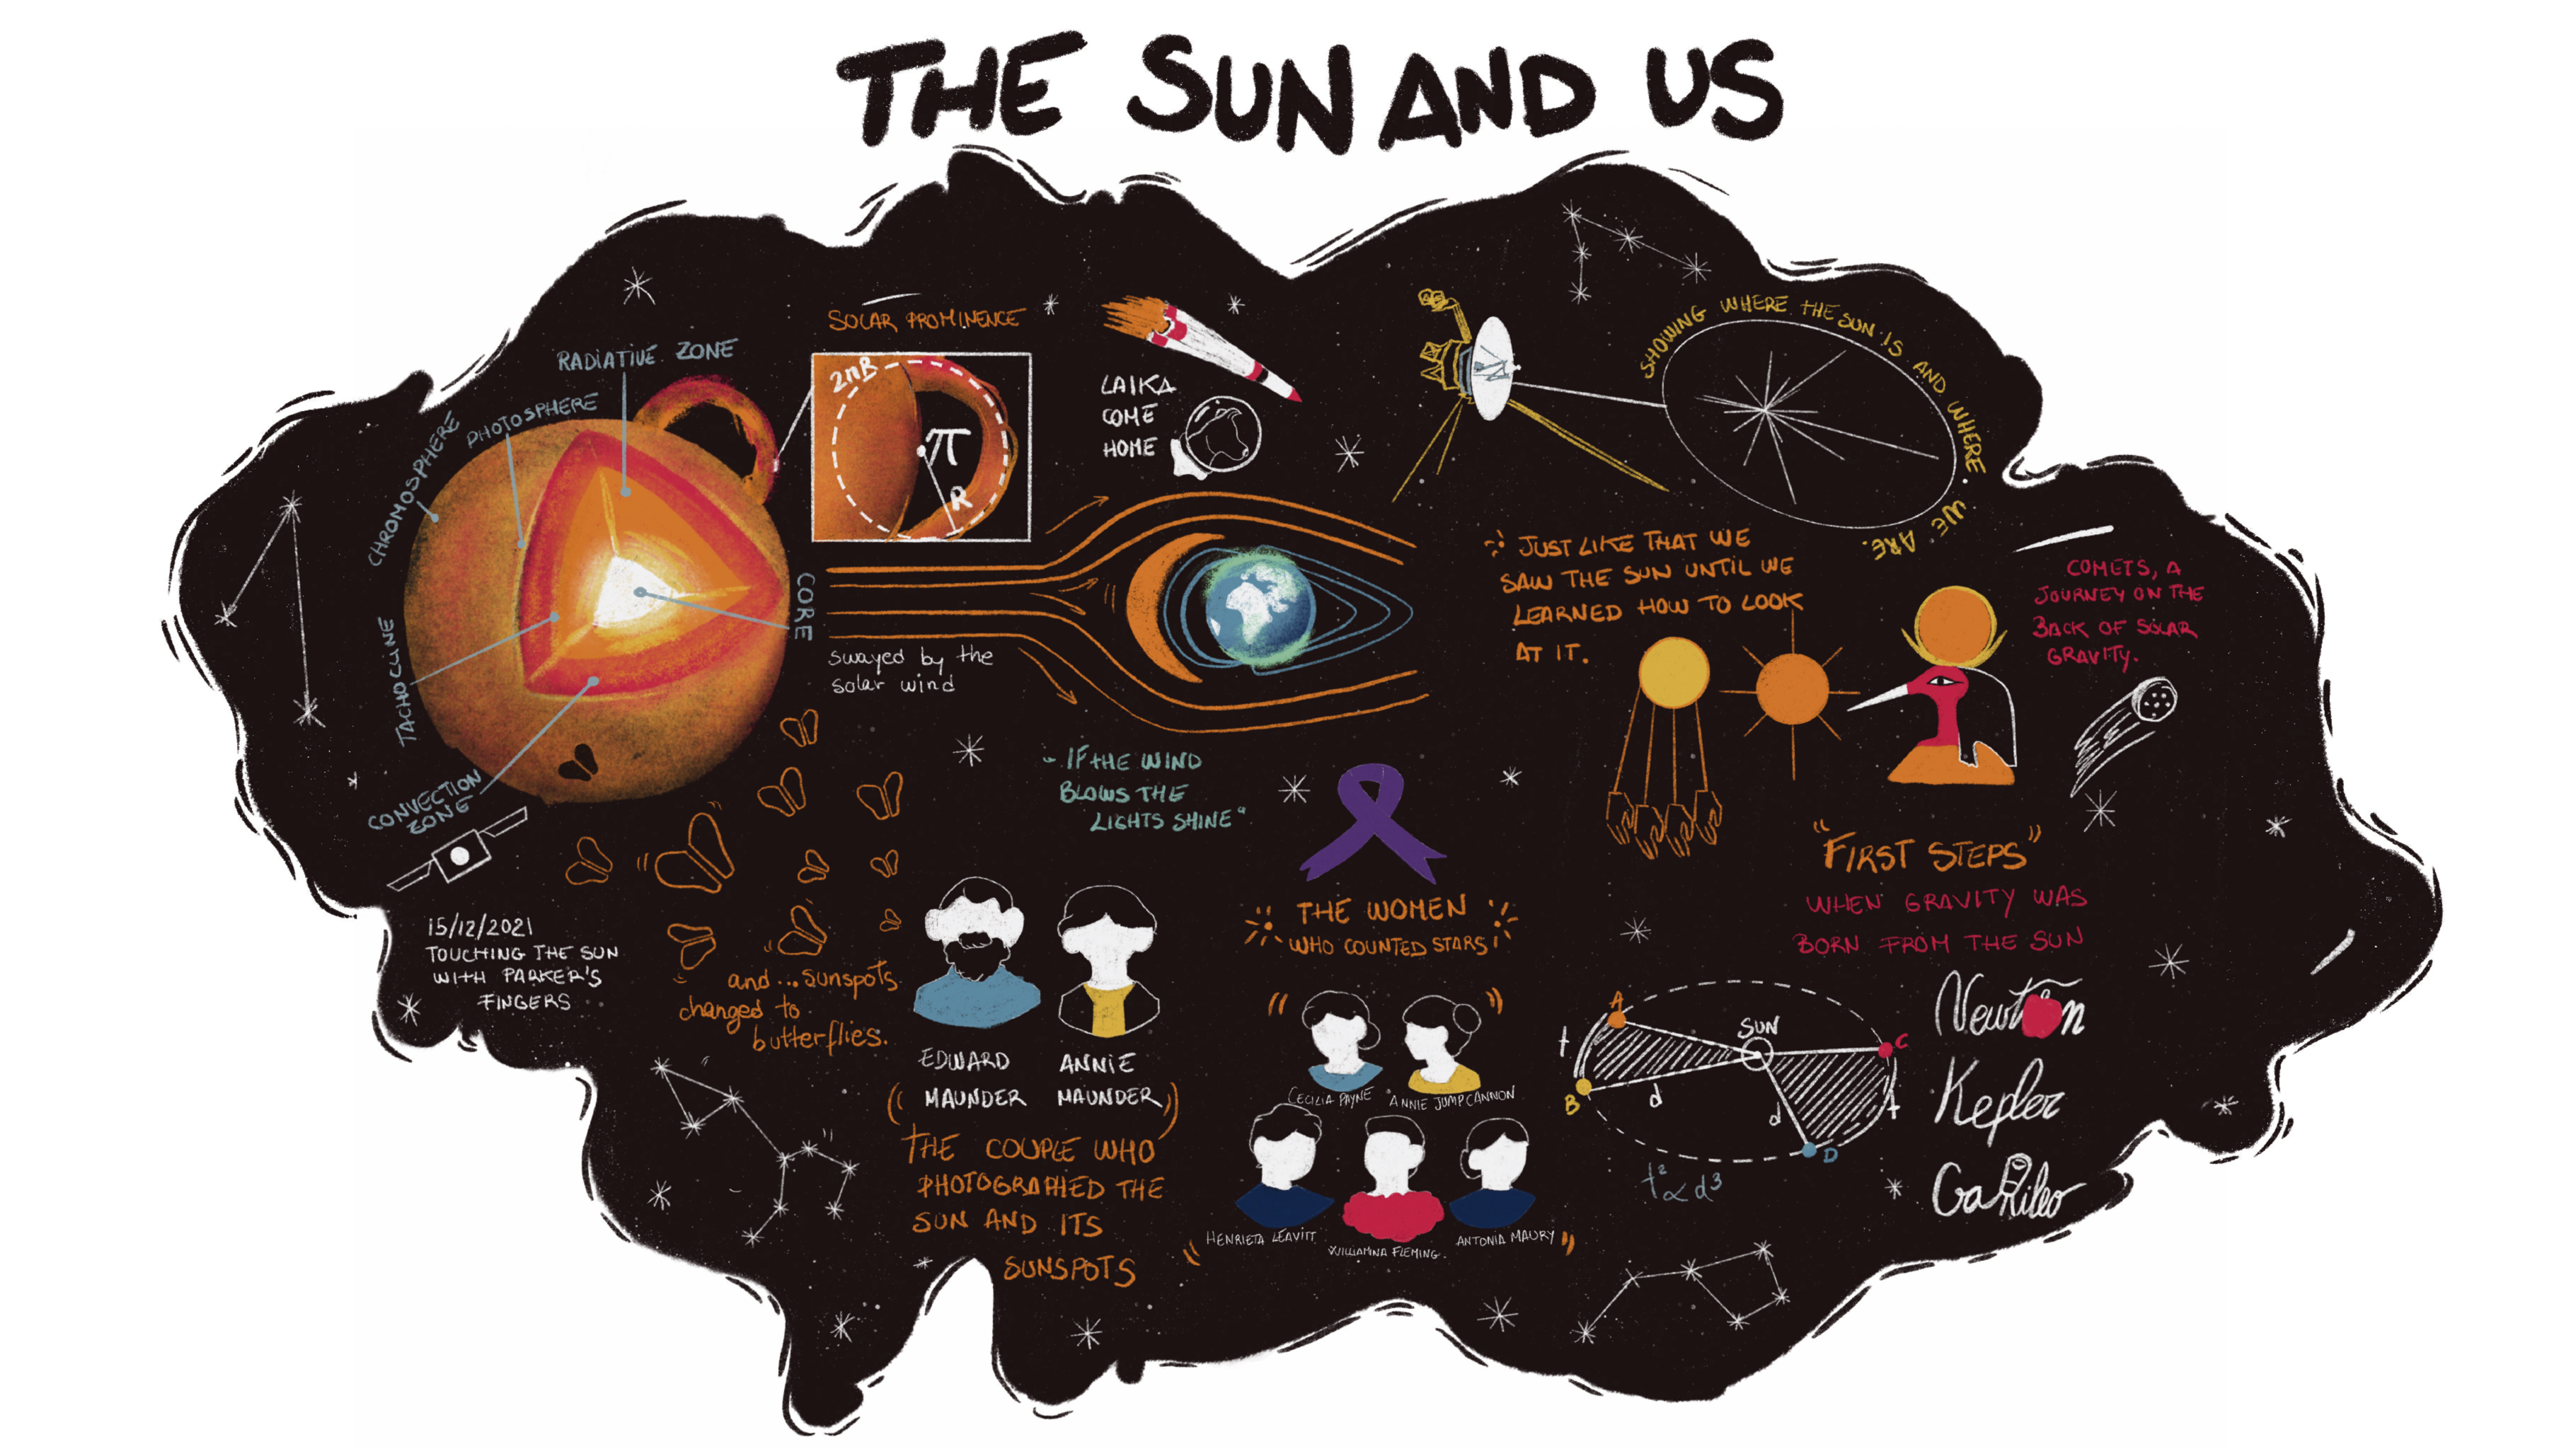 THE SUN AND US
SOLAR PROMINENCE
RADIATIVE ZONE
PHOTOSPHERE
CHROMOSPHERE
TACHOCLINE
CONVECTION
ZONE
CORE
2πR
π
R
LAIKA
COME
HOME
SHOWING WHERE THE SUN IS AND WHERE WE ARE.
swayed by the
solar wind
JUST LIKE THAT WE
SAW THE SUN UNTIL WE
LEARNED HOW TO LOOK
AT IT.
COMETS, A
JOURNEY ON THE
BACK OF SOLAR
GRAVITY.
IF THE WIND
BLOWS THE
LIGHTS SHINE"
15/12/2021
TOUCHING THE SUN
WITH PARKER'S
FINGERS
and...sunspots
changed to
butterflies.
EDWARD
MAUNDER
ANNIE
MAUNDER
THE COUPLE WHO
PHOTOGRAPHED THE
SUN AND ITS
SUNSPOTS
THE WOMEN
WHO COUNTED STARS
CECILIA PAYNE
ANNIE JUMP CANNON
HENRIETA LEAVITT
WILLIAMINA FLEMING.
ANTONIA MAURY
"FIRST STEPS"
WHEN GRAVITY WAS
BORN FROM THE SUN
A
B
C
D
SUN
t
d
d
t
t² ∝ d³
Newton
Kepler
Galileo